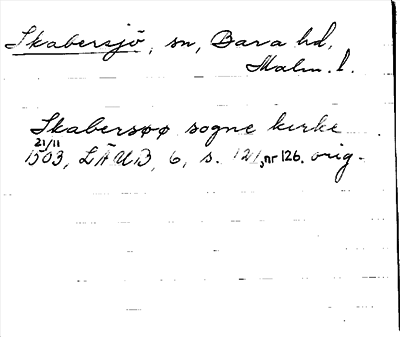 Skabersjö, sn, Bara hd,
Malm. l.
Skabersøø sogne kirke
21/11
1503, LÄUB, 6, s. 121, nr 126. orig.